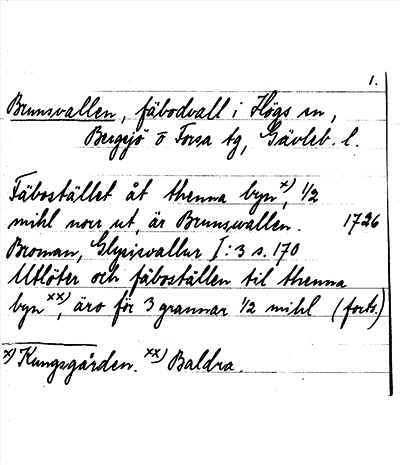 1.
Brunsvallen, fäbodvall i Högs sn,
Bergsjö o Forsa tg, Gävleb. l.
Fäbostället åt thenna byn x), 1/2
mihl norr ut, är Brunswallen. 1726
Broman, Glysisvallur I:3 s. 170
Utlöter och fäboställen til thenna
byn xx), äro för 3 grannar 1/2 mihl (forts.)
x) Kungsgården. xx) Baldra.